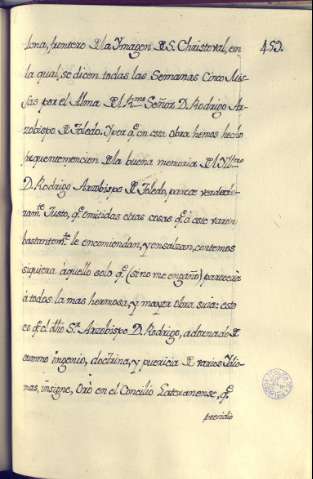 lona, frontero de la Ymagen de S. Christoval, en
la qual, se dicen todas las Semanas Cinco Mis-
sas por el Alma del R.mo Señor D. Rodrigo Ar-
zobispo de Toledo. Y por q.e en esta obra hemos hecho
frequentemencion de la buena memoria del Yll.mo
D. Rodrigo Arzobispo de Toledo, parece verdade-
ram.te Justo, q.e omitidas otras cosas q.e à este varon
bastantem.te le encomiendan, y ensalzan, contemos
siquiera àquello solo q.e (si no me engaño) pareceria
à todos la mas hermosa, y mayor obra suia: esto
es q.e el dho S.r Arzobispo D. Rodrigo, adornado de
summo ingenio, doctrina, y pericia de varios Ydio-
mas, insigne, Orò en el Concilio Lateranense, q.e
presidio
453.